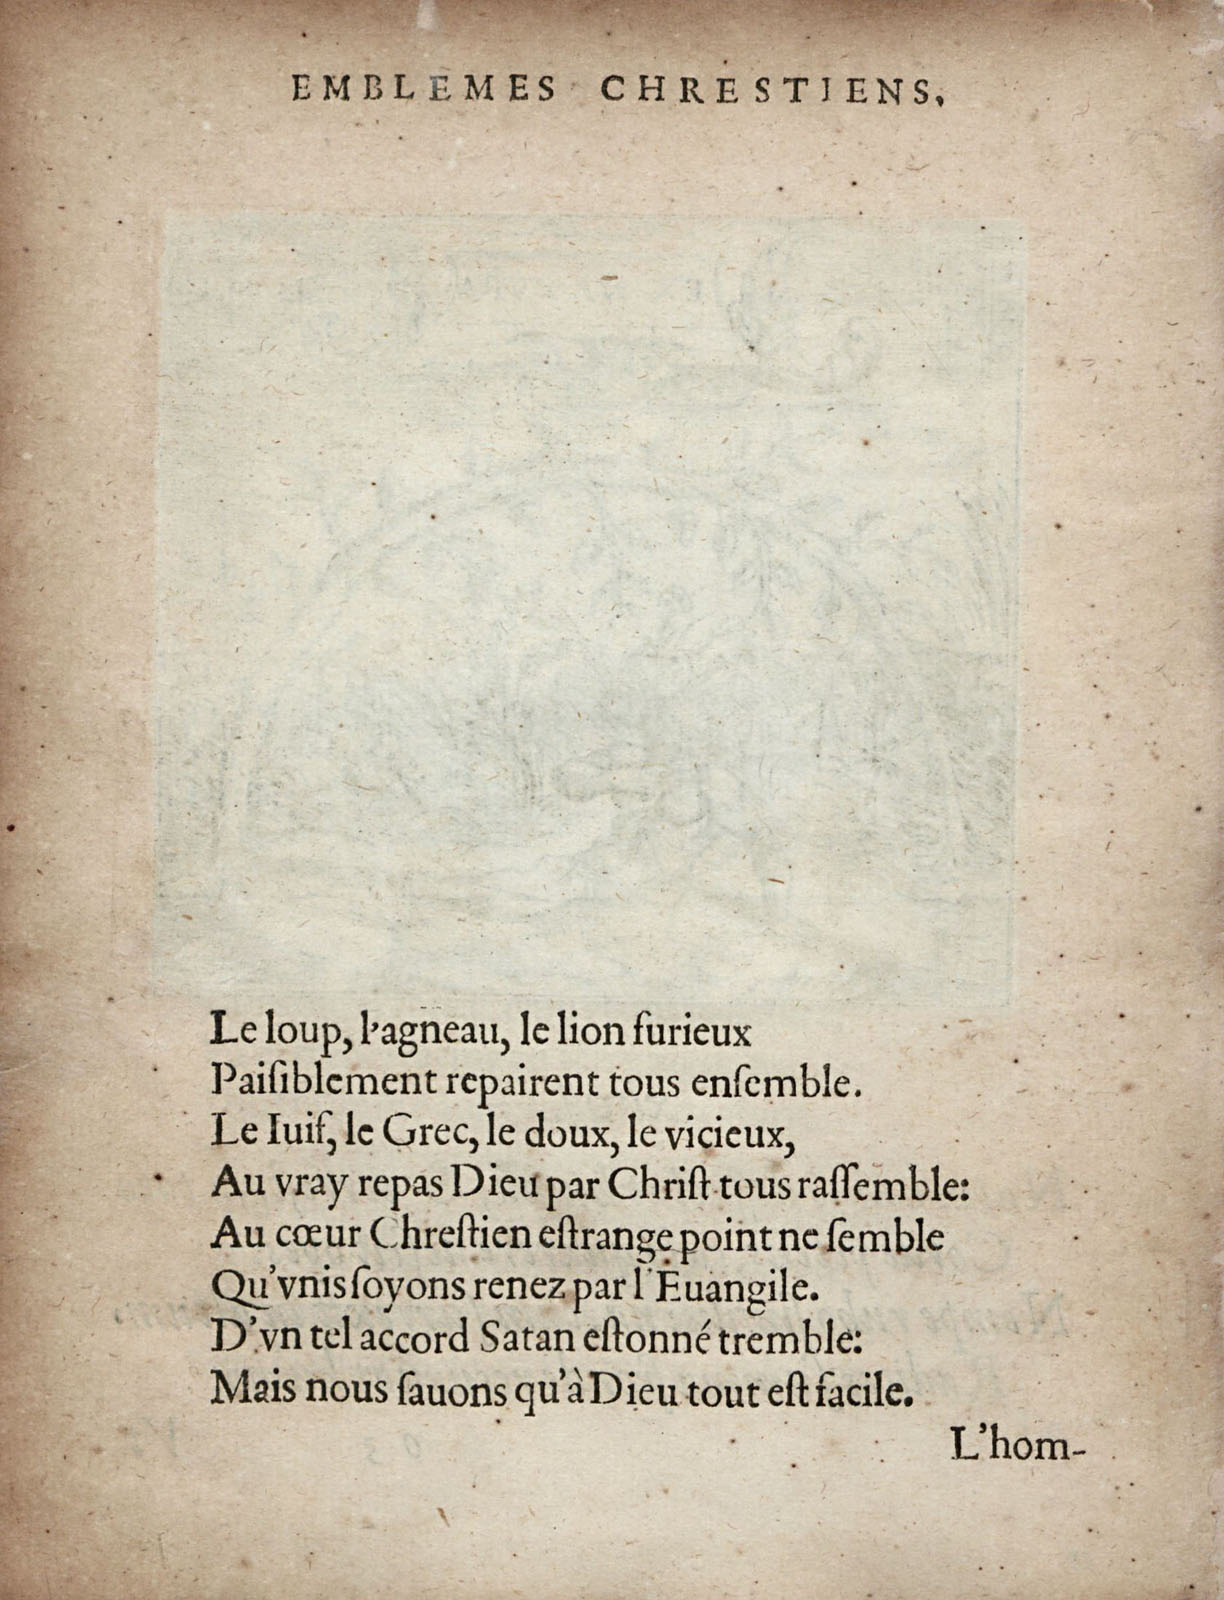 EMBLEMES CHRESTIENS.
Le loup, l'agneau, le lion furieux
Paiſiblement repairent tous enſemble.
Le Iuif, le Grec, le doux, le vicieux,
Au vray repas Dieu par Chriſt tous raſſemble:
Au cœur Chreſtien eſtrange point ne ſemble
Qu'vnis ſoyons renez par l'Euangile.
D'vn tel accord Satan eſtonné tremble:
Mais nous ſauons qu'à Dieu tout eſt facile.
L'hom-